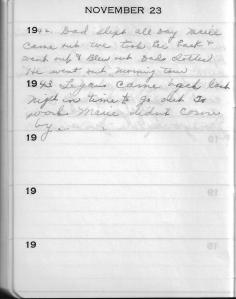 NOVEMBER 23
19 42 Dad slept all day Marie
came out we took the Pack &
went up & Blew out Dads clothes
He went out morning tour
19 43 Logans came back last
night in time to go out to
work Marie didnt come
by.
19
19
19